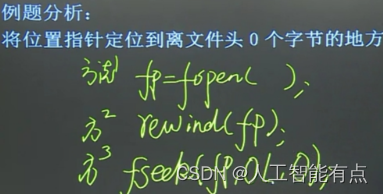 例题分析：
将位置指针定位到离文件头 0 个字节的地方
方法1 fp=fopen( );
方2 rewind(fp);
方3 fseek(fp,0L,0)
CSDN @人工智能有点